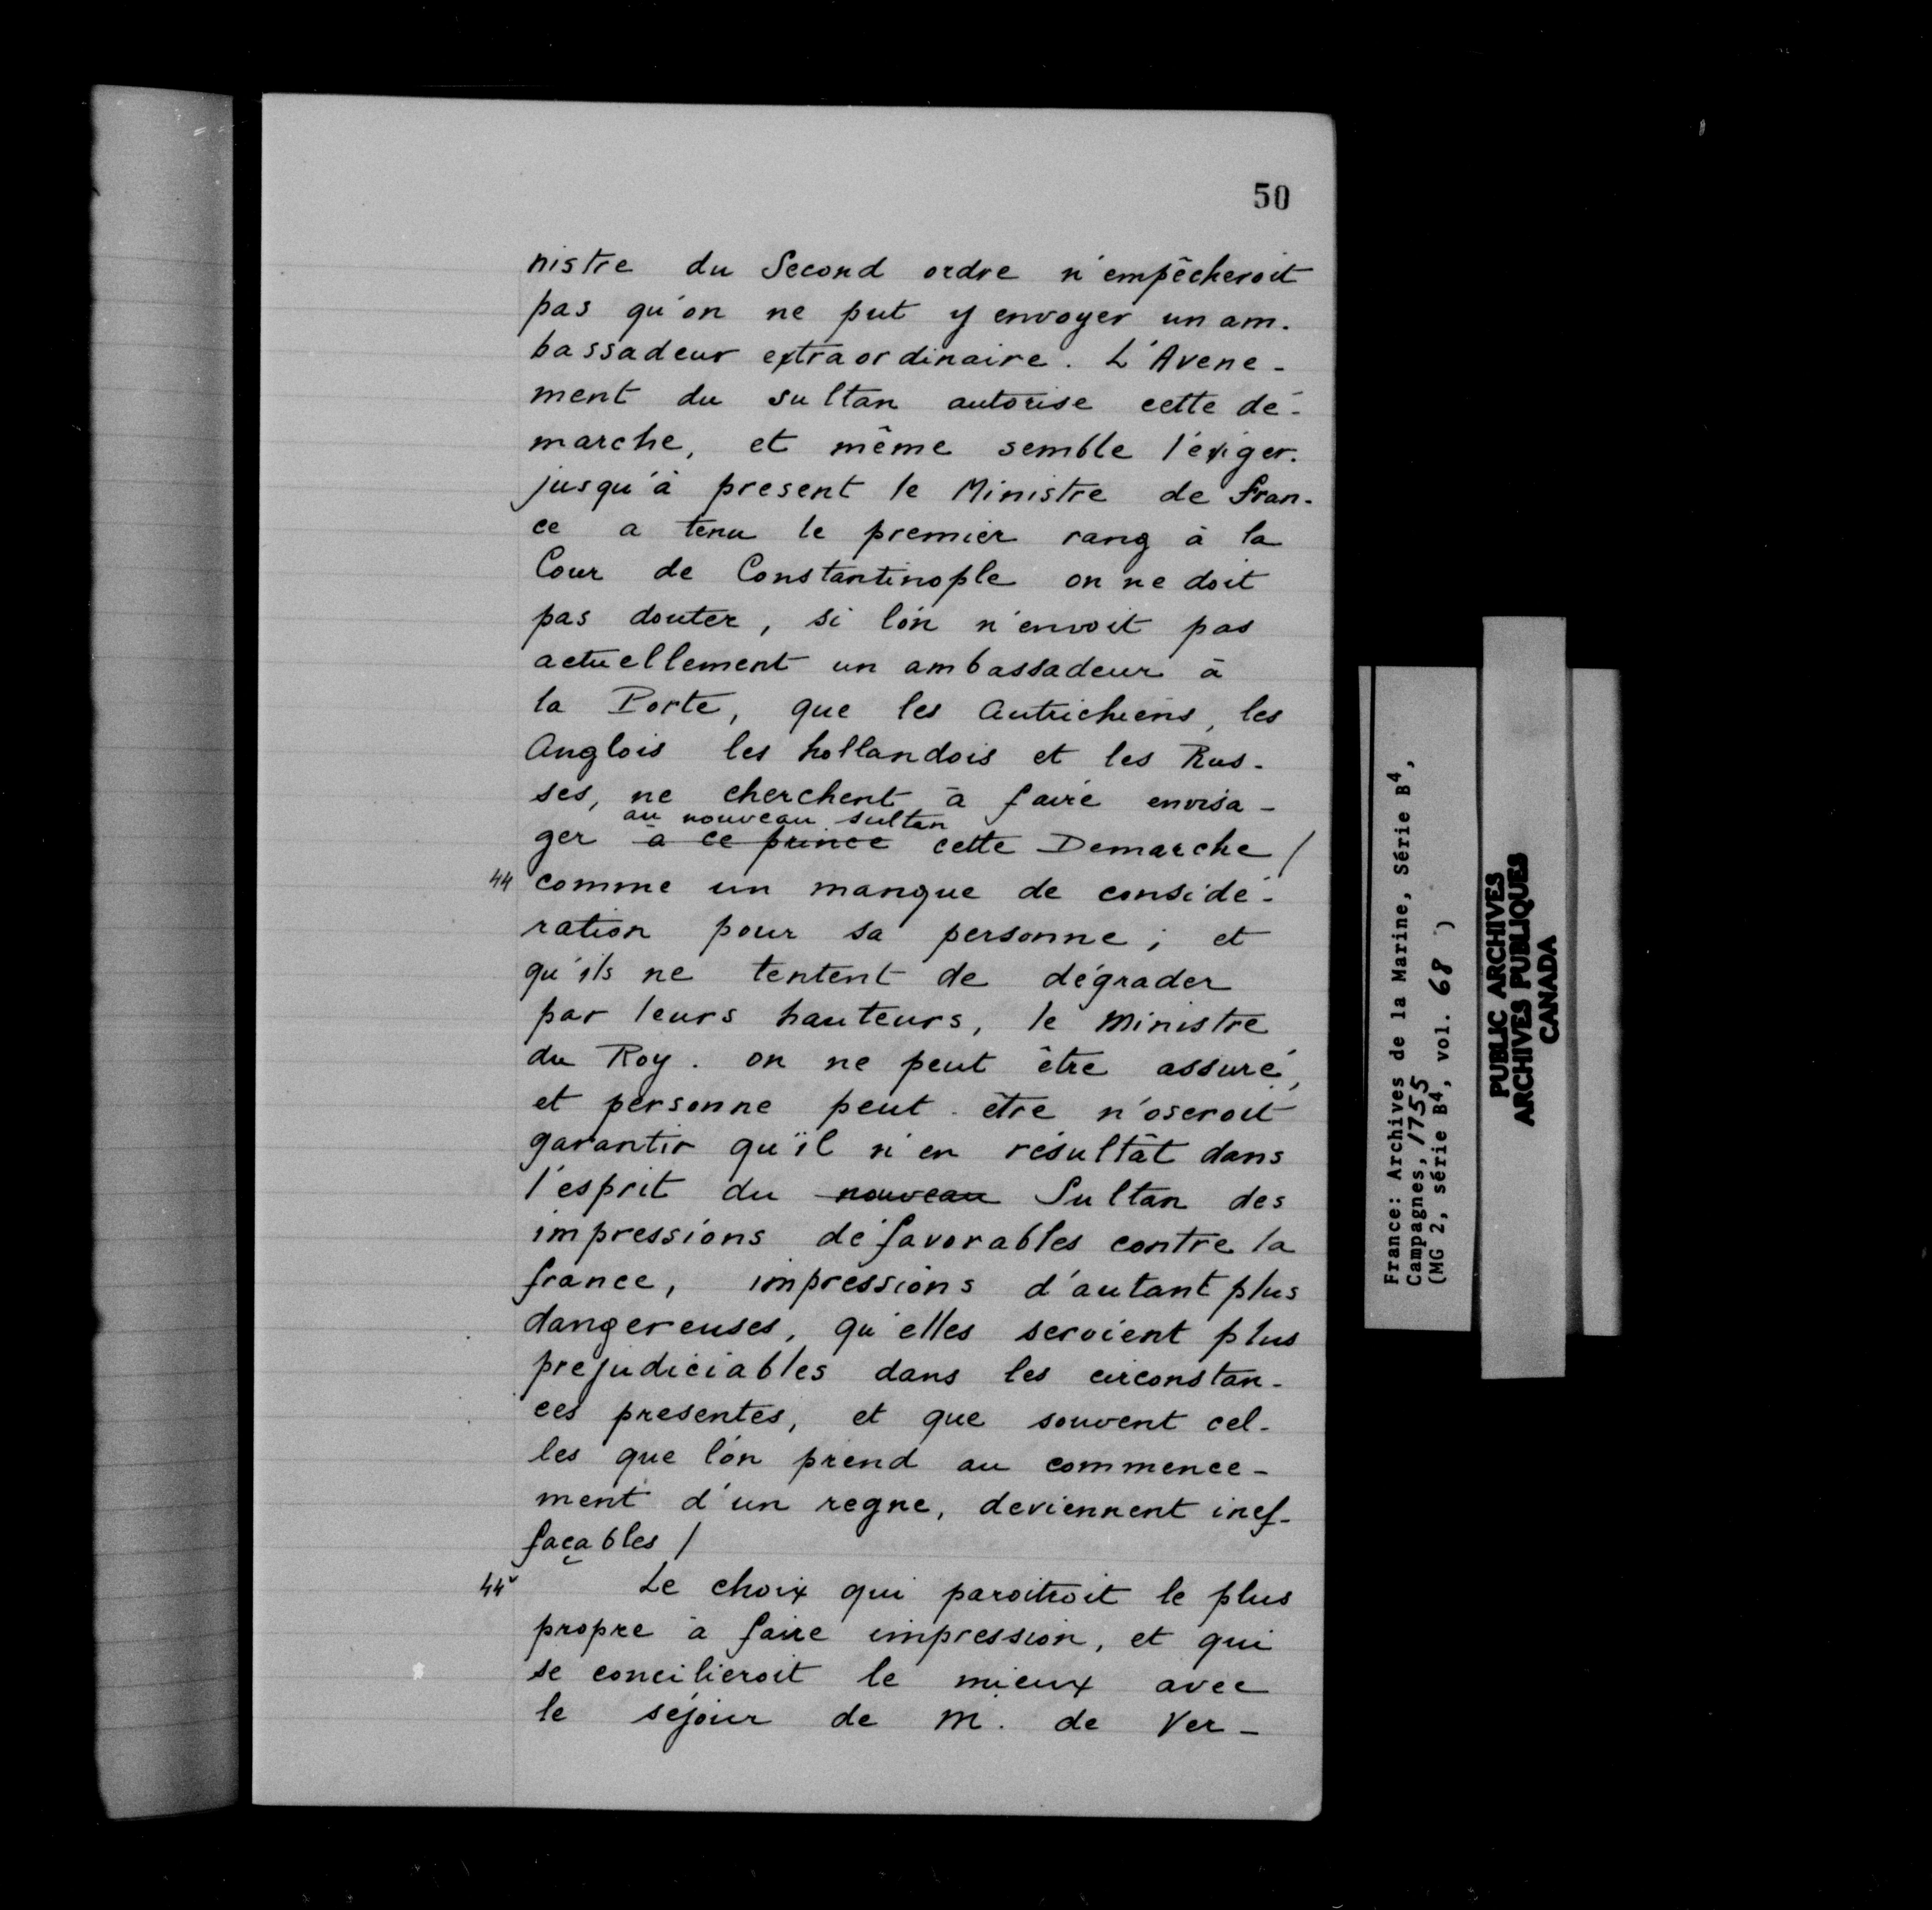 50
nistre du Second ordre n'empêcheroit
pas qu'on ne put y envoyer un am-
bassadeur extraordinaire. L'Avene-
ment du sultan autorise cette dé-
marche, et même semble l'éxiger.
jusqu'à present le Ministre de fran-
ce a tenu le premier rang à la
Cour de Constantinople on ne doit
pas douter, si l'on n'envoit pas
actuellement un ambassadeur à
la Porte, que les Autrichiens, les
Anglois les hollandois et les Rus-
ses, ne cherchent à faire envisa-
au nouveau sultan
ger à ce prince cette Demarche /
44 comme un manque de considé-
ration pour sa personne; et
qu'ils ne tentent de dégrader
par leurs hauteurs, le Ministre
du Roy. on ne peut être assuré,
et personne peut-être n'oseroit
garantir qu'il n'en résultât dans
l'esprit du nouveau Sultan des
impressions défavorables contre la
france, impressions d'autant plus
dangereuses, qu'elles seroient plus
prejudiciables dans les circonstan-
ces presentes, et que souvent cel-
les que l'on prend au commence-
ment d'un regne, deviennent inef-
façables /
44v Le choix qui paroitroit le plus
propre à faire impression, et qui
se concilieroit le mieux avec
le séjour de M. de Ver-
France: Archives de la Marine, Série B4,
Campagnes, 1755
(MG 2, série B4, vol. 68 )
PUBLIC ARCHIVES
ARCHIVES PUBLIQUES
CANADA